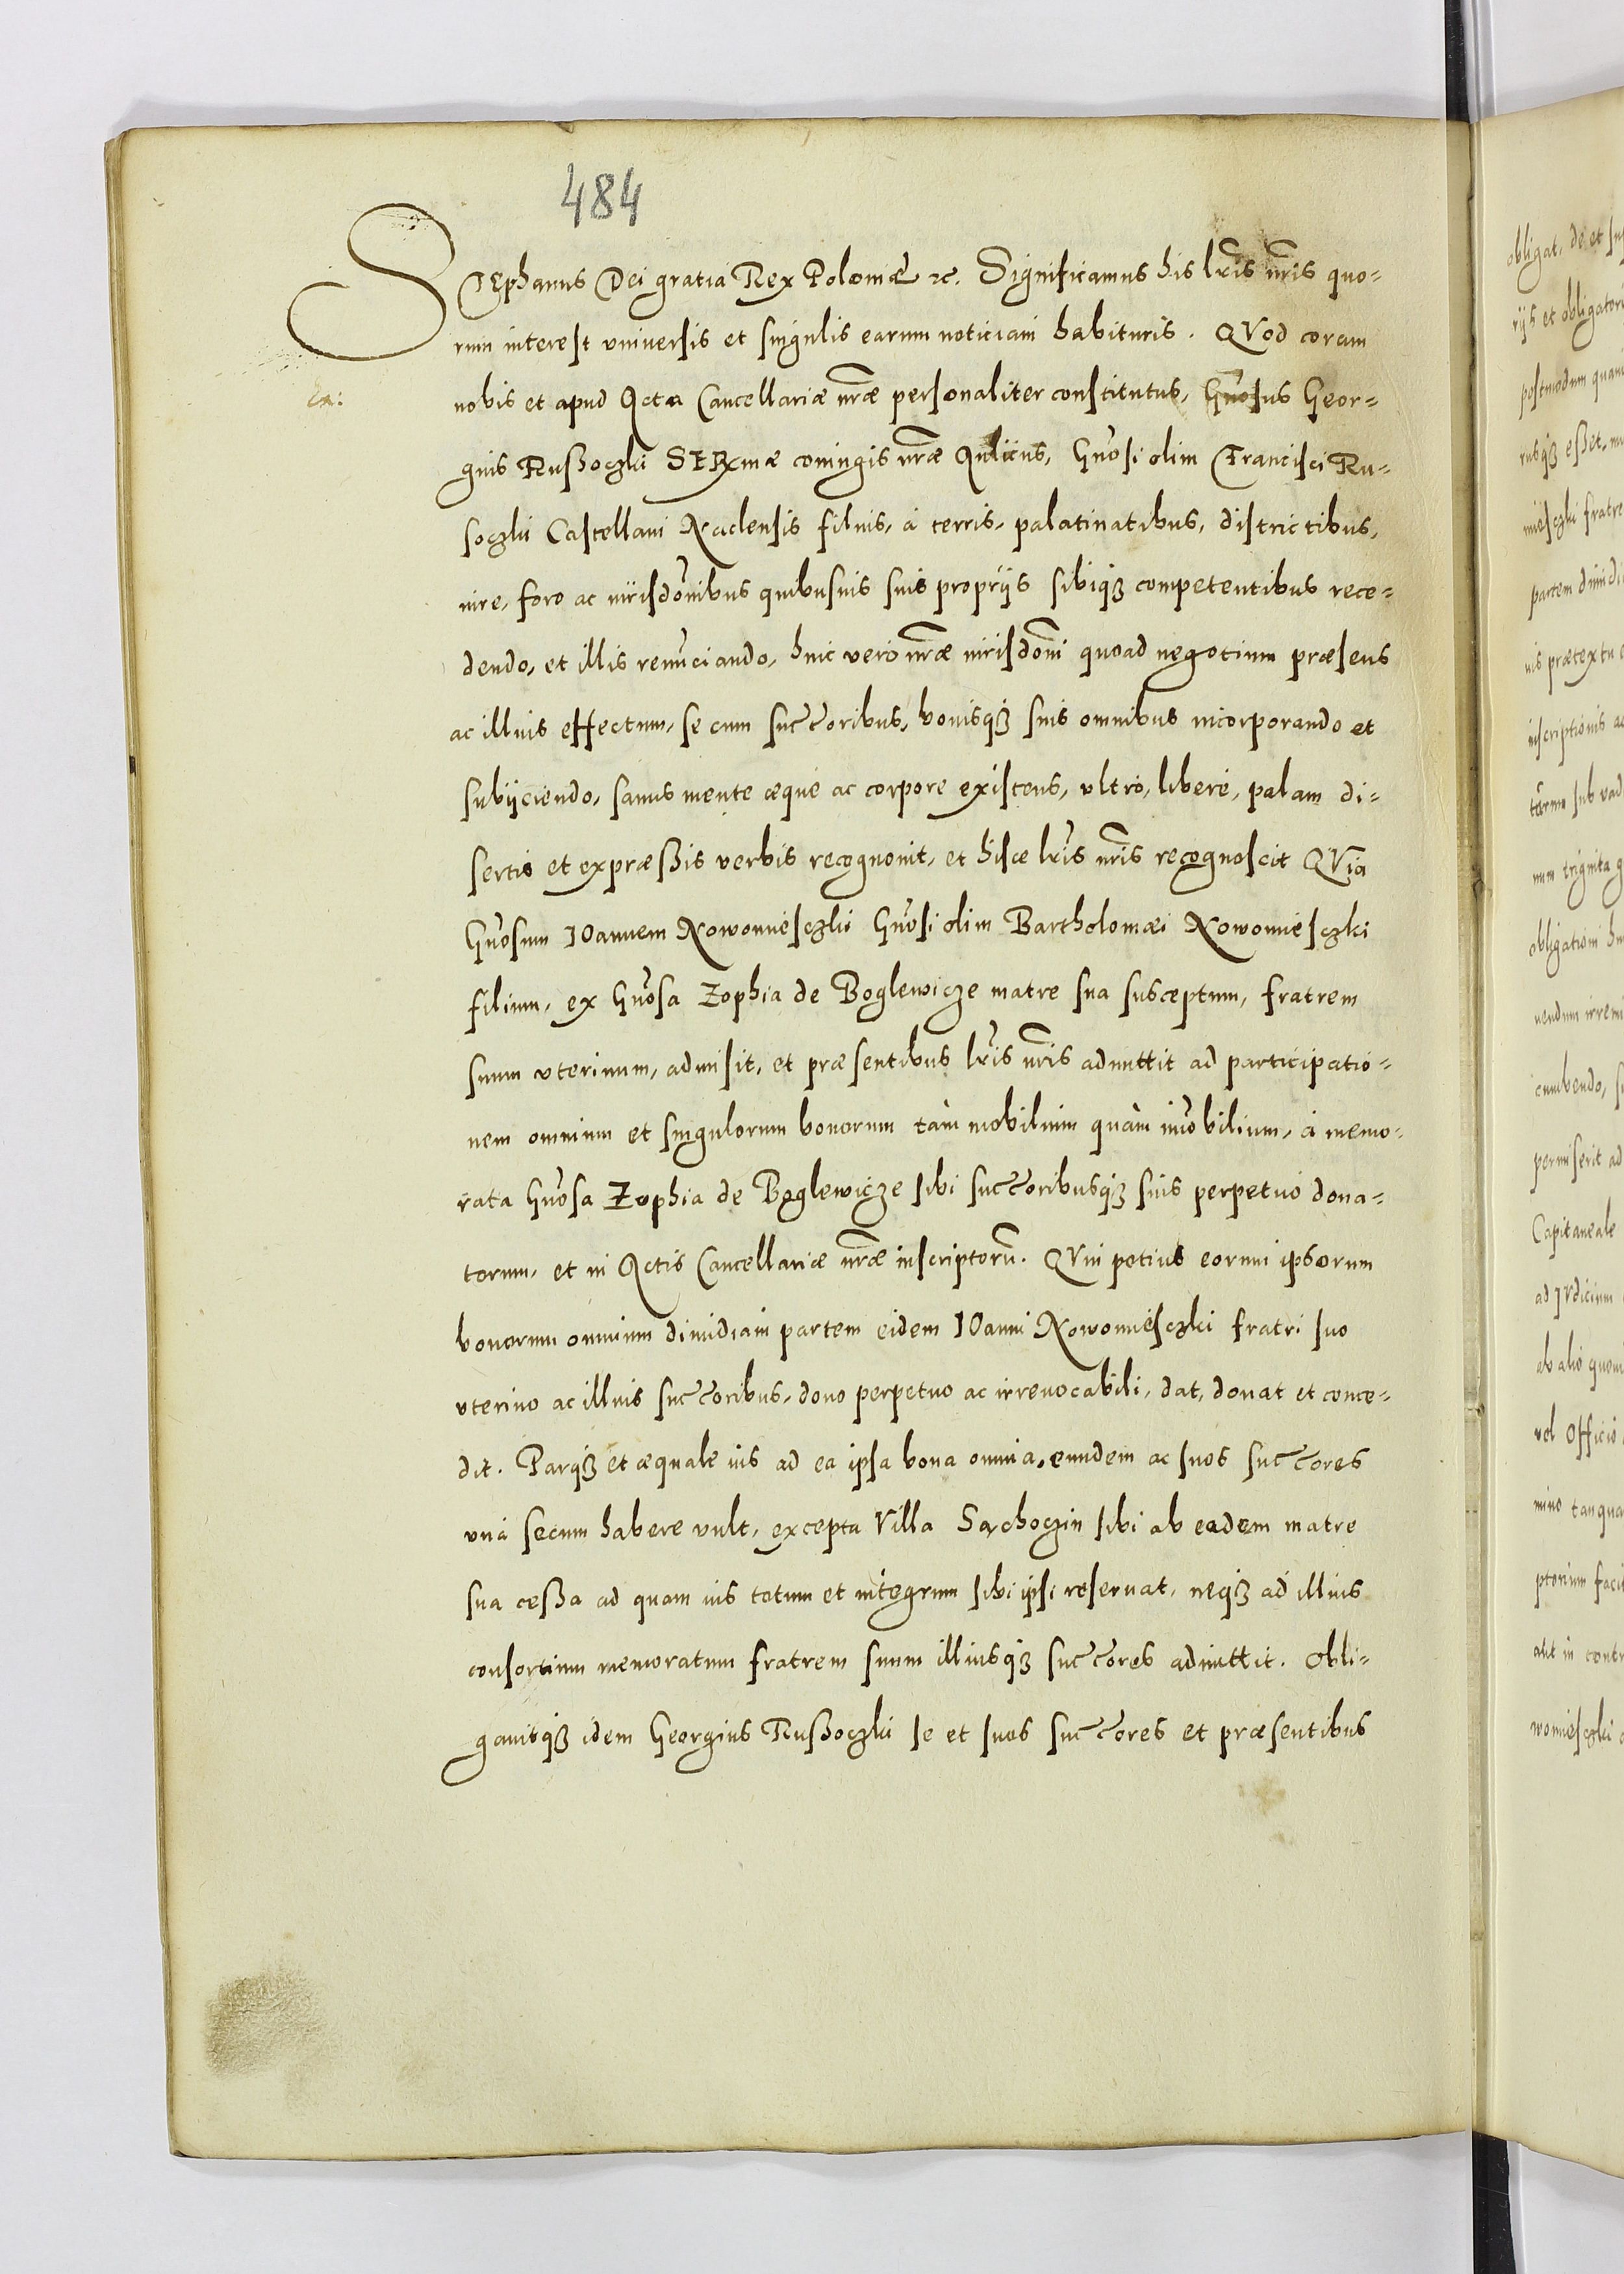 484
STEphanus Dei gratia Rex Poloniæ etc. Significamus his lr̃is nr̃is quo-
rum interest vniuersis et singulis earum noticiam habituris. QVod coram
Ex:
nobis et apud Acta Cancellariæ nr̃æ personaliter constitutus, Gñosus Geor-
gius Rußoczki SERmæ coniugis nr̃æ Aulicus, Gñosi olim Francisci Ru-
soczki Castellani Naclensis filius, à terris, palatinatibus, districtibus,
iure, foro ac iurisdõnibus quibusuis suis proprijs sibiq3 competentibus rece-
dendo, et illis renũciando, huic vero nr̃æ iurisdõni quoad negotium præsens
ac illius effectum, se cum succ̃oribus, bonisq3 suis omnibus incorporando et
subijciendo, sanus mente æque ac corpore existens, vltrò, liberè, palam di-
sertis et expræßis verbis recognouit, et hisce lr̃is nr̃is recognoscit QVia
Gñosum IOannem Nowomiesczki Gñosi olim Bartholomæi Nowomiesczki
filium, ex Gñosa Zophia de Boglewicze matre sua susceptum, fratrem
suum vterinum, admisit, et præsentibus lr̃is nr̃is admittit ad participatio-
nem omnium et singulorum bonorum tàm mobilium quàm im̃obilium, à memo-
rata Gñosa Zophia de Boglewicze sibi succ̃oribusq3 suis perpetuò dona-
torum, et in Actis Cancellariæ nr̃æ inscriptorũ. QVin potius eorum ipsorum
bonorum omnium dimidiam partem eidem IOanni Nowomiesczki fratri suo
vterino ac illius succ̃oribus, dono perpetuo ac irreuocabili, dat, donat et conce-
dit. Parq3 et æquale ius ad ea ipsa bona omnia, eundem ac suos succ̃ores
vnà secum habere vult, excepta Villa Sąchoczin sibi ab eadem matre
sua ceßa ad quam ius totum et integrum sibi ipsi reseruat, neq3 ad illius
consortium memoratum fratrem suum illiusq3 succ̃ores admittit. Obli-
gauitq3 idem Georgius Rußoczki se et suos succ̃ores et præsentibus
obligat, de et
rijs et obligator
postmodum
rusq3 eßet,
miesczki fratre
partem dimidi
uis prætextu
inscriptionis ac
sub vad
num triginta g
obligationi
cumbendo,
permiserit ad
Capitaneale
ad IVdicium
ab alio
vel Officio
mino tanqua
ptorium faci
aut in contr
womiesczki